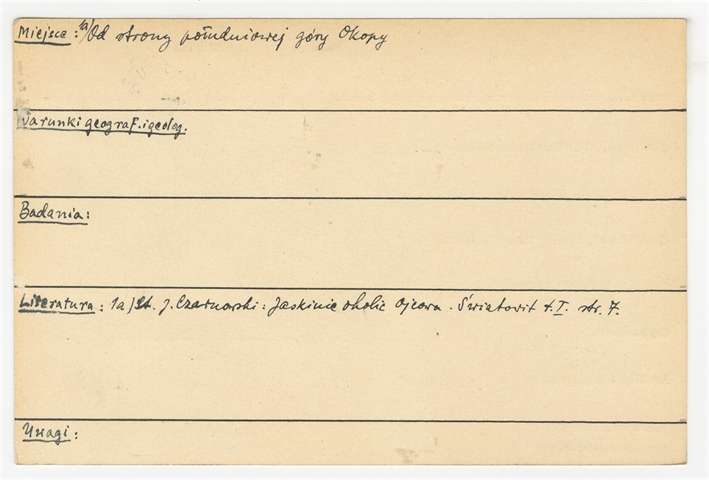 Miejsce : 1a/ Od strony południowej góry Okopy
Warunki geograf. i geolog.
Badania :
Literatura : 1a/ St. J. Czarnowski : Jaskinie okolic Ojcowa . Światowit t. I. str. 7.
Uwagi :